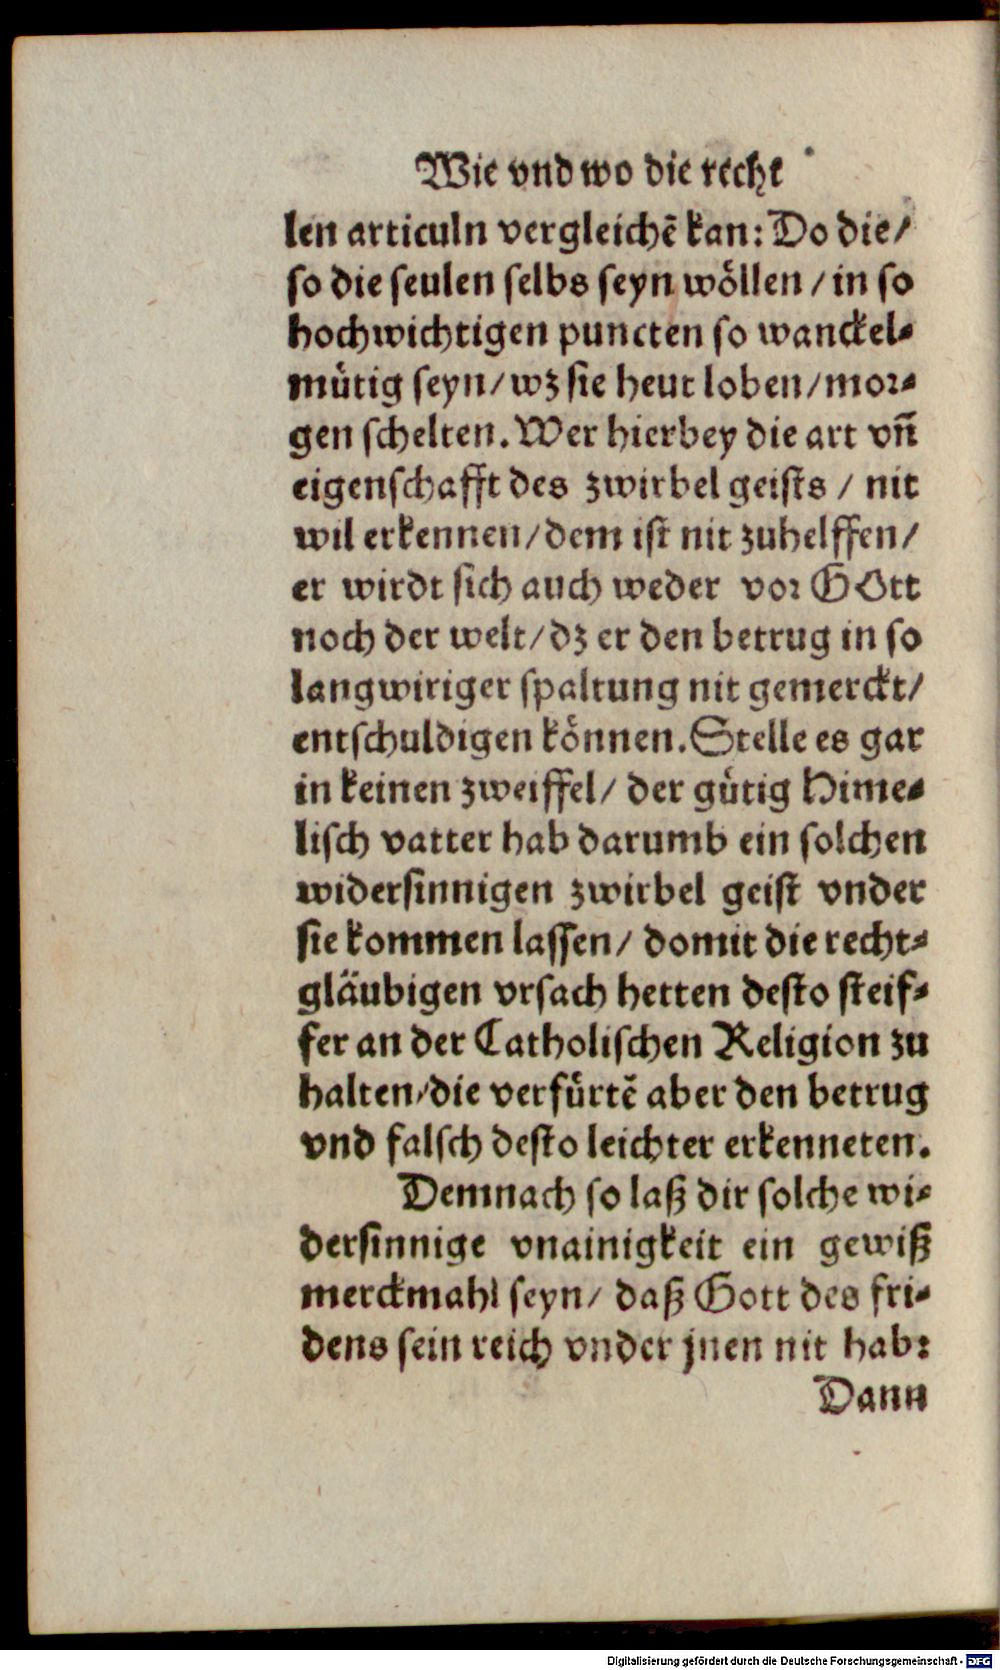 Wie vnd wo die recht
len articuln vergleichē kan: Do die/
so die seulen selbs seyn wöllen / in so
hochwichtigen puncten so wanckel-
mütig seyn/ wz sie heut loben/ mor-
gen schelten. Wer hierbey die art vñ
eigenschafft des zwirbel geists / nit
wil erkennen/ dem ist nit zuhelffen/
er wirdt sich auch weder vor GOtt
noch der welt/ dz er den betrug in so
langwiriger spaltung nit gemerckt/
entschuldigen können. Stelle es gar
in keinen zweiffel/ der gütig Hime-
lisch vatter hab darumb ein solchen
widersinnigen zwirbel geist vnder
sie kommen lassen/ domit die recht-
gläubigen vrsach hetten desto steif-
fer an der Catholischen Religion zu
halten/ die verfürtē aber den betrug
vnd falsch desto leichter erkenneten.
Demnach so laß dir solche wi-
dersinnige vnainigkeit ein gewiß
merckmahl seyn/ daß Gott des fri-
dens sein reich vnder jnen nit hab:
Dann
Digitalisierung gefördert durch die Deutsche Forschungsgemeinschaft - DFG